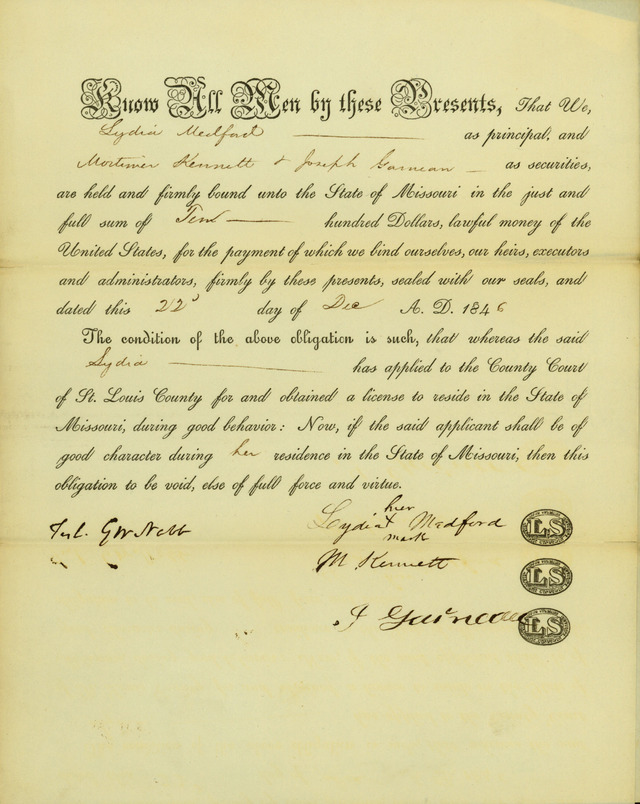 Know All Men by these Presents, That We,
Lydia Medford as principal, and
Mortimer Kennett & Joseph Garneau as securities,
are held and firmly bound unto the State of Missouri in the just and
full sum of Ten hundred Dollars, lawful money of the
United States, for the payment of which we bind ourselves, our heirs, executors
and administrators, firmly by these presents, sealed with our seals, and
dated this 22d day of Dec A. D. 1846
The condition of the above obligation is such, that whereas the said
Lydia has applied to the County Court
of St. Louis County for and obtained a license to reside in the State of
Missouri, during good behavior: Now, if the said applicant shall be of
good character during her residence in the State of Missouri, then this
obligation to be void, else of full force and virtue.
her
Lydia X Medford LS
mark
M. Kennett LS
J Garneau LS